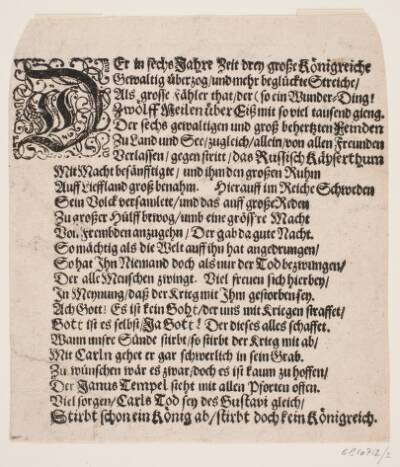 DEr in sechs Jahre Zeit drey große Königreiche
Gewaltig überzog/und mehr beglückte Streiche/
Als grosse Fähler that/der (so ein Wunder-Ding!
Zwölff Meilen über Eiß mit so viel tausend gieng.
Der sechs gewaltigen und groß behertzten Feinden
Zu Land und See/zugleich/allein/von allen Freunden
Verlassen/gegen stritt/das Russisch Käyserthum
Mit Macht besänfftigt/und ihm den großen Ruhm
Auff Lieffland groß benahm. Hierauff im Reiche Schweden
Sein Volck versamlete/und das auff große Reden
Zu großer Hülff bewog/umb eine gröss're Macht
Von Frembden anzugehn/Der gab da gute Nacht.
So mächtig als die Welt auff ihn hat angedrungen/
So hat Ihn Niemand doch als nur der Tod bezwungen/
Der alle Menschen zwingt. Viel freuen sich hierbey/
In Meynung/daß der Krieg mit Ihm gestorben sey.
Ach Gott! Es ist kein Goht/der uns mit Kriegen straffet/
Gott ist es selbst/Ja Gott! Der dieses alles schaffet.
Wann unsre Sünde stirbt/so stirbt der Krieg mit ab/
Mit Carln gehet er gar schwerlich in sein Grab.
Zu wünschen wär es zwar/doch es ist kaum zu hoffen/
Der Janus Tempel steht mit allen Pforten offen.
Viel sorgen/Carls Tod sey des Gustavi gleich/
Stirbt schon ein König ab/stirbt doch kein Königreich.